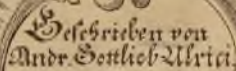 Geschrieben von
Andr. Gottlieb Ulrici.